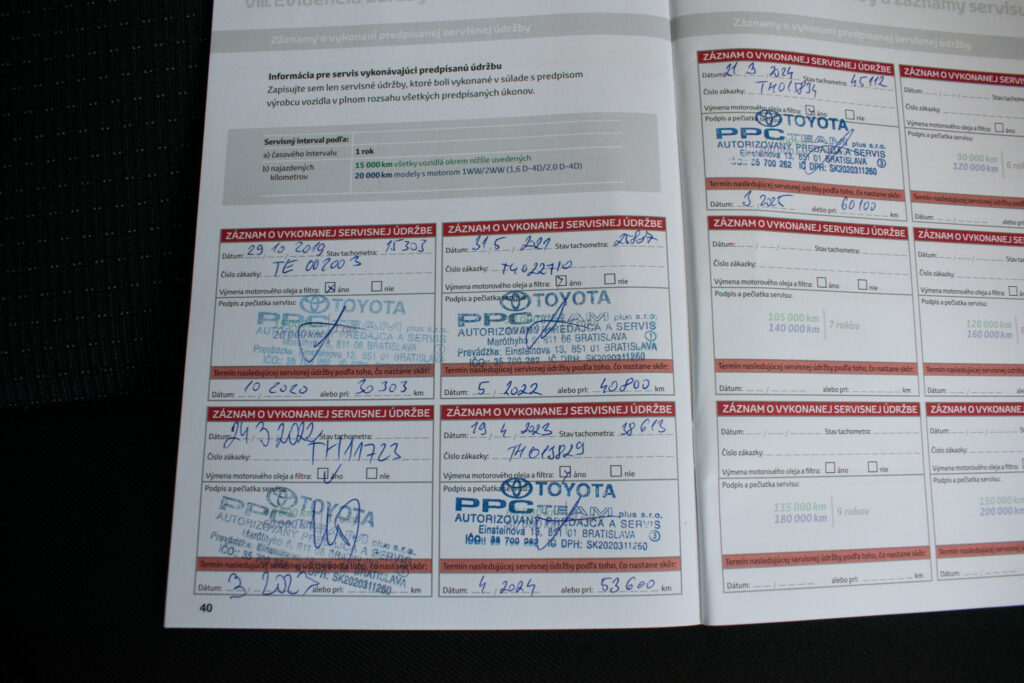 VIII. Evidencia údržby
Záznamy o vykonaní predpísanej servisnej údržby
Informácia pre servis vykonávajúci predpísanú údržbu
Zapisujte sem len servisné údržby, ktoré boli vykonané v súlade s predpisom
výrobcu vozidla v plnom rozsahu všetkých predpísaných úkonov.
Servisný interval podľa:
a) časového intervalu 1 rok
b) najazdených kilometrov 15 000 km všetky vozidlá okrem nižšie uvedených
20 000 km modely s motorom 1WW/2WW (1,6 D-4D/2,0 D-4D)
ZÁZNAM O VYKONANEJ SERVISNEJ ÚDRŽBE
Dátum: 29 10 2019 Stav tachometra: 15 303
Číslo zákazky: TE 002003
Výmena motorového oleja a filtra: áno nie
Podpis a pečiatka servisu:
TOYOTA
PPC TEAM plus s.r.o.
AUTORIZOVANÝ PREDAJCA A SERVIS
811 06 BRATISLAVA
Prevádzka: Einsteinova 13, 851 01 BRATISLAVA
Termín nasledujúcej servisnej údržby podľa toho, čo nastane skôr:
Dátum: 10 2020 alebo pri: 30 303 km
ZÁZNAM O VYKONANEJ SERVISNEJ ÚDRŽBE
Dátum: 31. 5. 2021 Stav tachometra:
Číslo zákazky: TH022710
Výmena motorového oleja a filtra: áno nie
Podpis a pečiatka servisu:
TOYOTA
PPC TEAM plus s.r.o.
AUTORIZOVANÝ PREDAJCA A SERVIS
Maróthyho 6, 811 06 BRATISLAVA
Prevádzka: Einsteinova 13, 851 01 BRATISLAVA
IČO: 35 700 262 IČ DPH: SK2020311260
Termín nasledujúcej servisnej údržby podľa toho, čo nastane skôr:
Dátum: 5. 2022 alebo pri: 40 800 km
ZÁZNAM O VYKONANEJ SERVISNEJ ÚDRŽBE
Dátum: 24. 3 2022 Stav tachometra:
Číslo zákazky: TH11723
Výmena motorového oleja a filtra: áno nie
Podpis a pečiatka servisu:
TOYOTA
PPC TEAM plus s.r.o.
AUTORIZOVANÝ PREDAJCA A SERVIS
Maróthyho 6, 811 06 BRATISLAVA
Prevádzka: Einsteinova BRATISLAVA
IČO: 35 700 DPH: SK2020311260
Termín nasledujúcej servisnej údržby podľa toho, čo nastane skôr:
Dátum: 3. 2023 alebo pri: km
ZÁZNAM O VYKONANEJ SERVISNEJ ÚDRŽBE
Dátum: 19. 4 2023 Stav tachometra: 38 613
Číslo zákazky: TH015829
Výmena motorového oleja a filtra: áno nie
Podpis a pečiatka servisu:
TOYOTA
PPC TEAM plus s.r.o.
AUTORIZOVANÝ PREDAJCA A SERVIS
Einsteinova 13, 851 01 BRATISLAVA
IČO: 35 700 262 IČ DPH: SK2020311260
Termín nasledujúcej servisnej údržby podľa toho, čo nastane skôr:
Dátum: 4. 2024 alebo pri: 53 600 km
40
a záznamy servisu
Záznamy o vykonaní predpísanej servisnej údržby
ZÁZNAM O VYKONANEJ SERVISNEJ ÚDRŽBE
Dátum: 21. 3. 2024 Stav tachometra: 45112
Číslo zákazky: TH015834
Výmena motorového oleja a filtra: áno nie
Podpis a pečiatka
TOYOTA
PPC TEAM plus s.r.o.
AUTORIZOVANÝ PREDAJCA A SERVIS
Einsteinova 13, 851 01 BRATISLAVA
IČO: 35 700 262 IČ DPH: SK2020311260
Termín nasledujúcej servisnej údržby podľa toho, čo nastane skôr:
Dátum: 3 2025 alebo pri: 60 100 km
ZÁZNAM O VYKONANEJ SERVISNEJ
Dátum: Stav tachometra
Číslo zákazky:
Výmena motorového oleja a filtra: áno
Podpis a pečiatka servisu:
90 000 km
120 000 km
Termín nasledujúcej servisnej údržby podľa
Dátum: alebo pri:
ZÁZNAM O VYKONANEJ SERVISNEJ ÚDRŽBE
Dátum: Stav tachometra:
Číslo zákazky:
Výmena motorového oleja a filtra: áno nie
Podpis a pečiatka servisu:
105 000 km
140 000 km
7 rokov
Termín nasledujúcej servisnej údržby podľa toho, čo nastane skôr:
Dátum: alebo pri: km
ZÁZNAM O VYKONANEJ SERVISNEJ
Dátum: Stav tachometra
Číslo zákazky:
Výmena motorového oleja a filtra:
Podpis a pečiatka servisu:
120 000 km
160 000 km
Termín nasledujúcej servisnej údržby podľa
Dátum: alebo pri:
ZÁZNAM O VYKONANEJ SERVISNEJ ÚDRŽBE
Dátum: Stav tachometra:
Číslo zákazky:
Výmena motorového oleja a filtra: áno nie
Podpis a pečiatka servisu:
135 000 km
180 000 km
9 rokov
Termín nasledujúcej servisnej údržby podľa toho, čo nastane skôr:
Dátum: alebo pri: km
ZÁZNAM O VYKONANEJ SERVISNEJ
Dátum: Stav
Číslo zákazky:
Výmena motorového oleja a filtra:
Podpis a pečiatka servisu:
150 000 km
200 000 km
Termín nasledujúcej servisnej údržby podľa
Dátum: alebo pri: